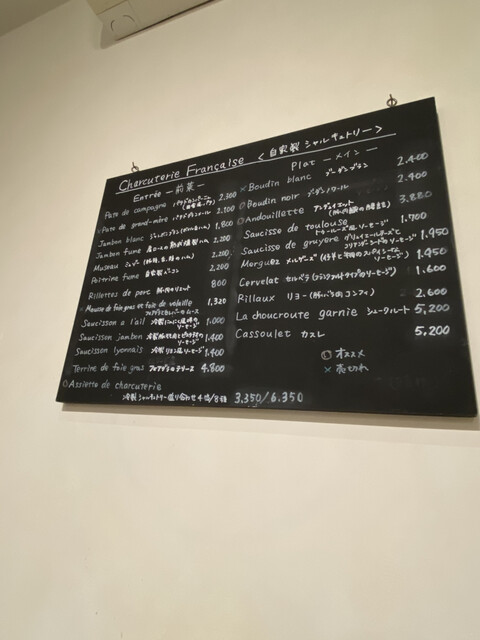 Charcuterie Française <自家製 シャルキュトリー>
Entrée ー前菜ー
Pate de campagne 2,300
Pate de grand-mère 2,200
Jambon blanc 1,800
Jambon fume 2,200
Museau 2,200
Poitrine fume 自家製ベーコン 2,200
Rillettes de porc 豚肉のリエット 800
× Mousse de foie gras et foie de volaille 1,320
フォアグラと白レバーのムース
Saucisson a l'ail 1,000
Saucisson jambon 1,400
Saucisson lyonnais 1,400
Terrine de foie gras フォアグラのテリーヌ 4,800
○ Assiette de charcuterie
冷製シャルキュトリー盛り合わせ4種/8種 3,350/6,350
Plat ーメインー
× Boudin blanc ブーダンブラン 2,400
○ Boudin noir ブーダンノワール 2,400
○ Andouillette アンドゥイエット 3,880
Saucisse de toulouse 1,700
トゥールーズ風ソーセージ
Saucisse de gruyere 1,450
Merguez メルゲーズ 1,450
Cervelat セルベラ (フランクフルトタイプのソーセージ) 1,600
Rillaux リヨー (豚バラ肉コンフィ) 2,600
La choucroute garnie シュークルート 5,200
Cassoulet カスレ 5,200
○ オススメ
× 売切れ